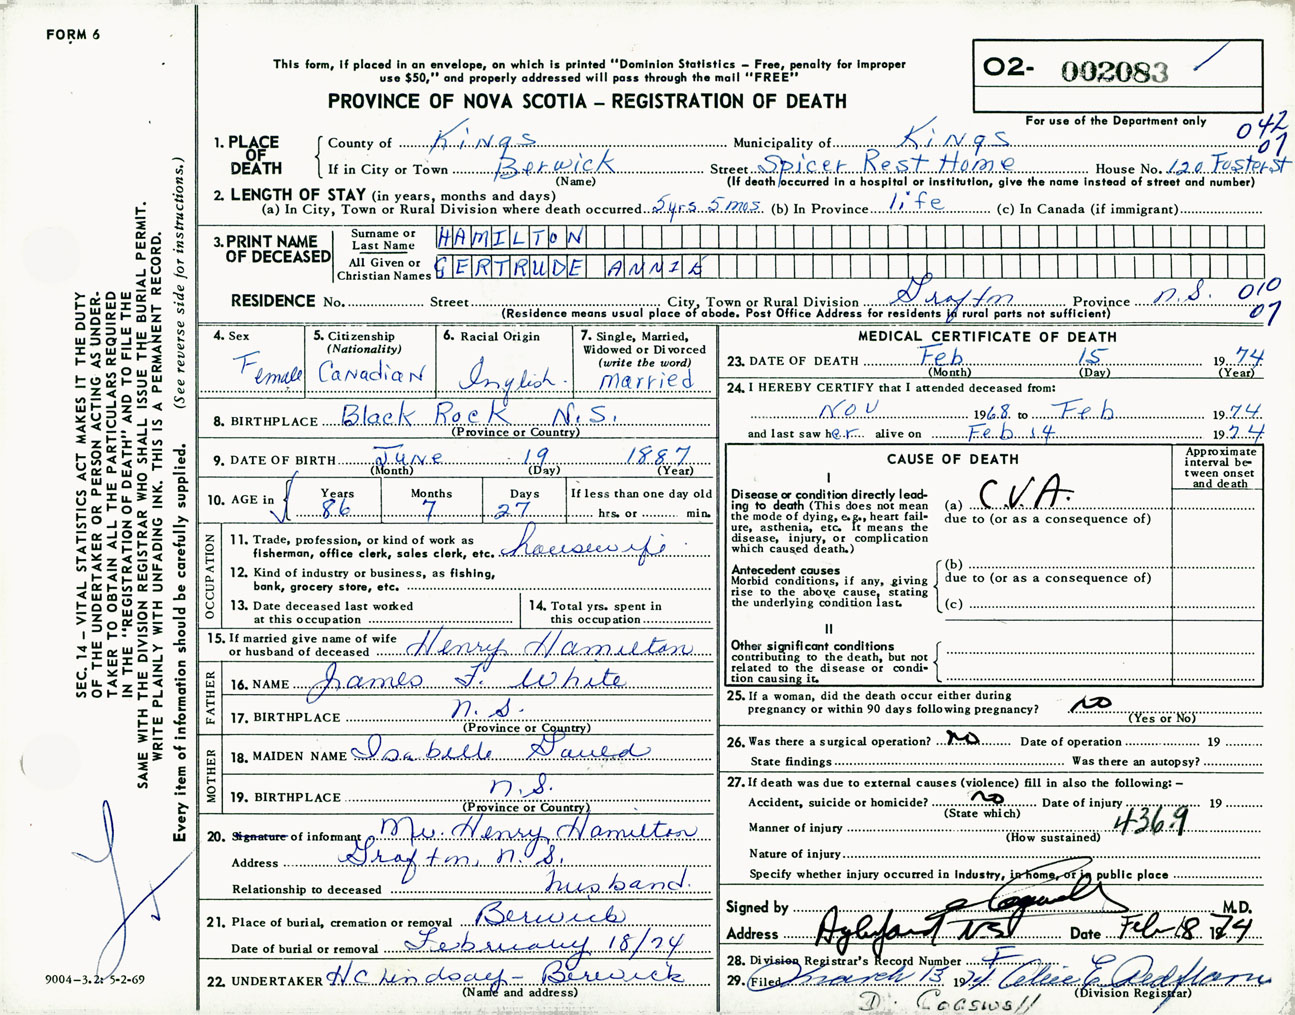 FORM 6
This form, if placed in an envelope, on which is printed "Dominion Statistics – Free, penalty for improper
use $50," and properly addressed will pass through the mail "FREE"
PROVINCE OF NOVA SCOTIA – REGISTRATION OF DEATH
O2- 002083
For use of the Department only
042
07
1. PLACE OF DEATH County of Kings Municipality of Kings
If in City or Town Berwick Street Spicer Rest Home House No. 120 Foster St
(Name) (If death occurred in a hospital or institution, give the name instead of street and number)
2. LENGTH OF STAY (in years, months and days)
(a) In City, Town or Rural Division where death occurred 5yrs 5mos (b) In Province life (c) In Canada (if immigrant)
3. PRINT NAME OF DECEASED Surname or Last Name HAMILTON
All Given or Christian Names GERTRUDE ANNIE
RESIDENCE No. Street City, Town or Rural Division Grafton Province N.S. 010
(Residence means usual place of abode. Post Office Address for residents in rural parts not sufficient) 07
4. Sex Female
5. Citizenship (Nationality) Canadian
6. Racial Origin English
7. Single, Married, Widowed or Divorced (write the word) married
8. BIRTHPLACE Black Rock N.S.
(Province or Country)
9. DATE OF BIRTH June 19 1887
(Month) (Day) (Year)
10. AGE in Years 86 Months 7 Days 27 If less than one day old
hrs. or min.
OCCUPATION
11. Trade, profession, or kind of work as
fisherman, office clerk, sales clerk, etc. housewife
12. Kind of industry or business, as fishing,
bank, grocery store, etc.
13. Date deceased last worked
at this occupation
14. Total yrs. spent in
this occupation
15. If married give name of wife
or husband of deceased Henry Hamilton
FATHER
16. NAME James F. White
17. BIRTHPLACE N.S.
(Province or Country)
MOTHER
18. MAIDEN NAME Isabelle
19. BIRTHPLACE N.S.
(Province or Country)
20. Signature of informant Mr. Henry Hamilton
Address Grafton, N.S.
Relationship to deceased husband.
21. Place of burial, cremation or removal Berwick
Date of burial or removal February 18/74
22. UNDERTAKER H C Lindsay – Berwick
(Name and address)
MEDICAL CERTIFICATE OF DEATH
23. DATE OF DEATH Feb 15 1974
(Month) (Day) (Year)
24. I HEREBY CERTIFY that I attended deceased from:
Nov 1968 to Feb 1974
and last saw her alive on Feb 14 1974
CAUSE OF DEATH
Approximate
interval be-
tween onset
and death
I
Disease or condition directly lead-
ing to death (This does not mean
the mode of dying, e.g., heart fail-
ure, asthenia, etc. It means the
disease, injury, or complication
which caused death.)
(a) C.V.A.
due to (or as a consequence of)
Antecedent causes
Morbid conditions, if any, giving
rise to the above cause, stating
the underlying condition last.
(b)
due to (or as a consequence of)
(c)
II
Other significant conditions
contributing to the death, but not
related to the disease or condi-
tion causing it.
25. If a woman, did the death occur either during
pregnancy or within 90 days following pregnancy? no
(Yes or No)
26. Was there a surgical operation? no Date of operation 19
State findings Was there an autopsy?
27. If death was due to external causes (violence) fill in also the following: –
Accident, suicide or homicide? no Date of injury 19
(State which)
Manner of injury 436.9
(How sustained)
Nature of injury
Specify whether injury occurred in Industry, in home, or in public place
Signed by M.D.
Address Aylesford NS Date Feb 18 1974
28. Division Registrar's Record Number F
29. (Filed March 13 1974
(Division Registrar)
D. Cogswell
SEC. 14 – VITAL STATISTICS ACT MAKES IT THE DUTY
OF THE UNDERTAKER OR PERSON ACTING AS UNDER-
TAKER TO OBTAIN ALL THE PARTICULARS REQUIRED
IN THE "REGISTRATION OF DEATH" AND TO FILE THE
SAME WITH THE DIVISION REGISTRAR WHO SHALL ISSUE THE BURIAL PERMIT.
WRITE PLAINLY WITH UNFADING INK. THIS IS A PERMANENT RECORD.
Every item of information should be carefully supplied. (See reverse side for instructions.)
9004–3.2: 5-2-69